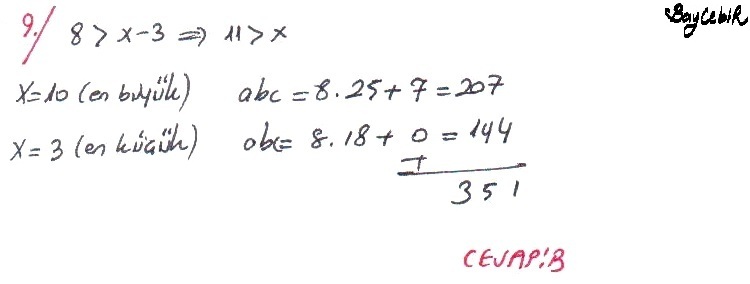 BayCebiR
9./ 8 > x-3 ⇒ 11 > x
x=10 (en büyük) abc = 8.25+7 = 207
x=3 (en küçük) abc= 8.18+0 = 144
+
351
CEVAP:B